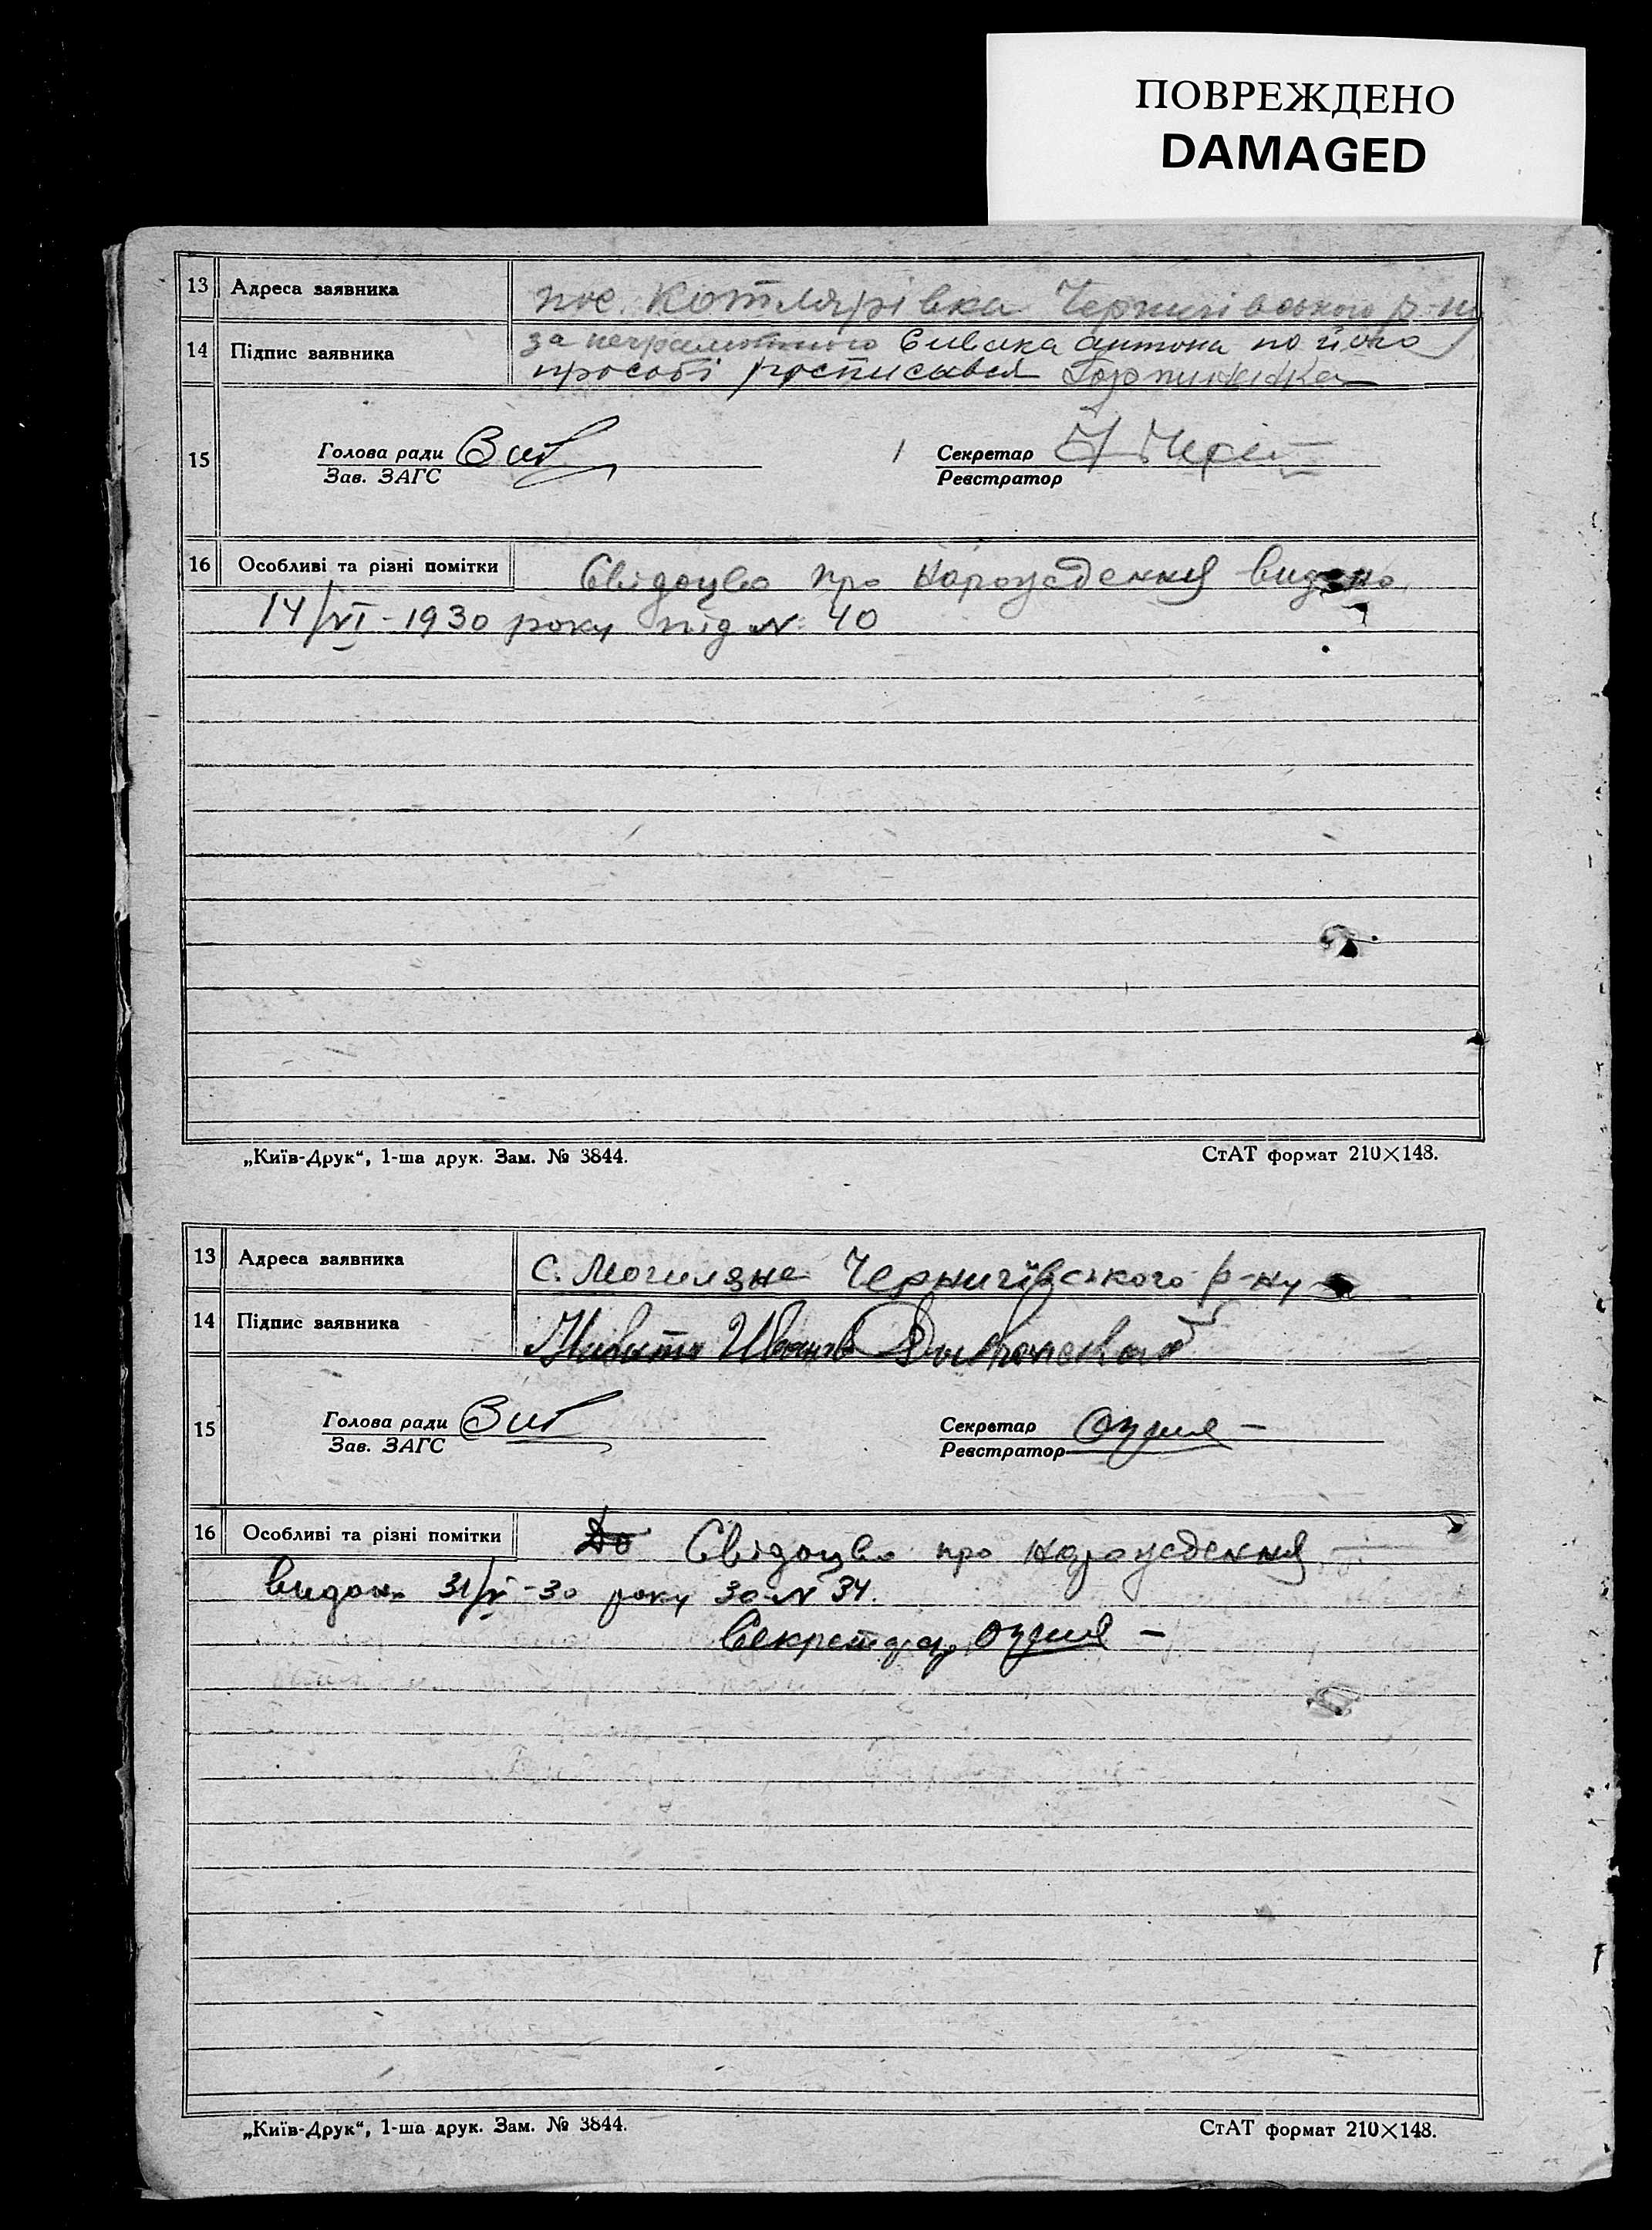 ПОВРЕЖДЕНО
DAMAGED
13 Адреса заявника пос. Котлярівка Чернигівського р-ну
14 Підпис заявника за неграмотного Сивака Антона по його
прособі росписався
15 Голова ради
Зав. ЗАГС
Секретар
Реєстратор
16 Особливі та різні помітки Свідоцво про народження видано
14/VI-1930 року під № 40
„Київ-Друк“, 1-ша друк. Зам. № 3844. СтАТ формат 210×148.
13 Адреса заявника с. Могиляне Чернигівського р-ну
14 Підпис заявника
15 Голова ради
Зав. ЗАГС
Секретар
Реєстратор
16 Особливі та різні помітки До Свідоцво про народження
видано 31/V-30 року за № 34.
Секретар
„Київ-Друк“, 1-ша друк. Зам. № 3844. СтАТ формат 210×148.